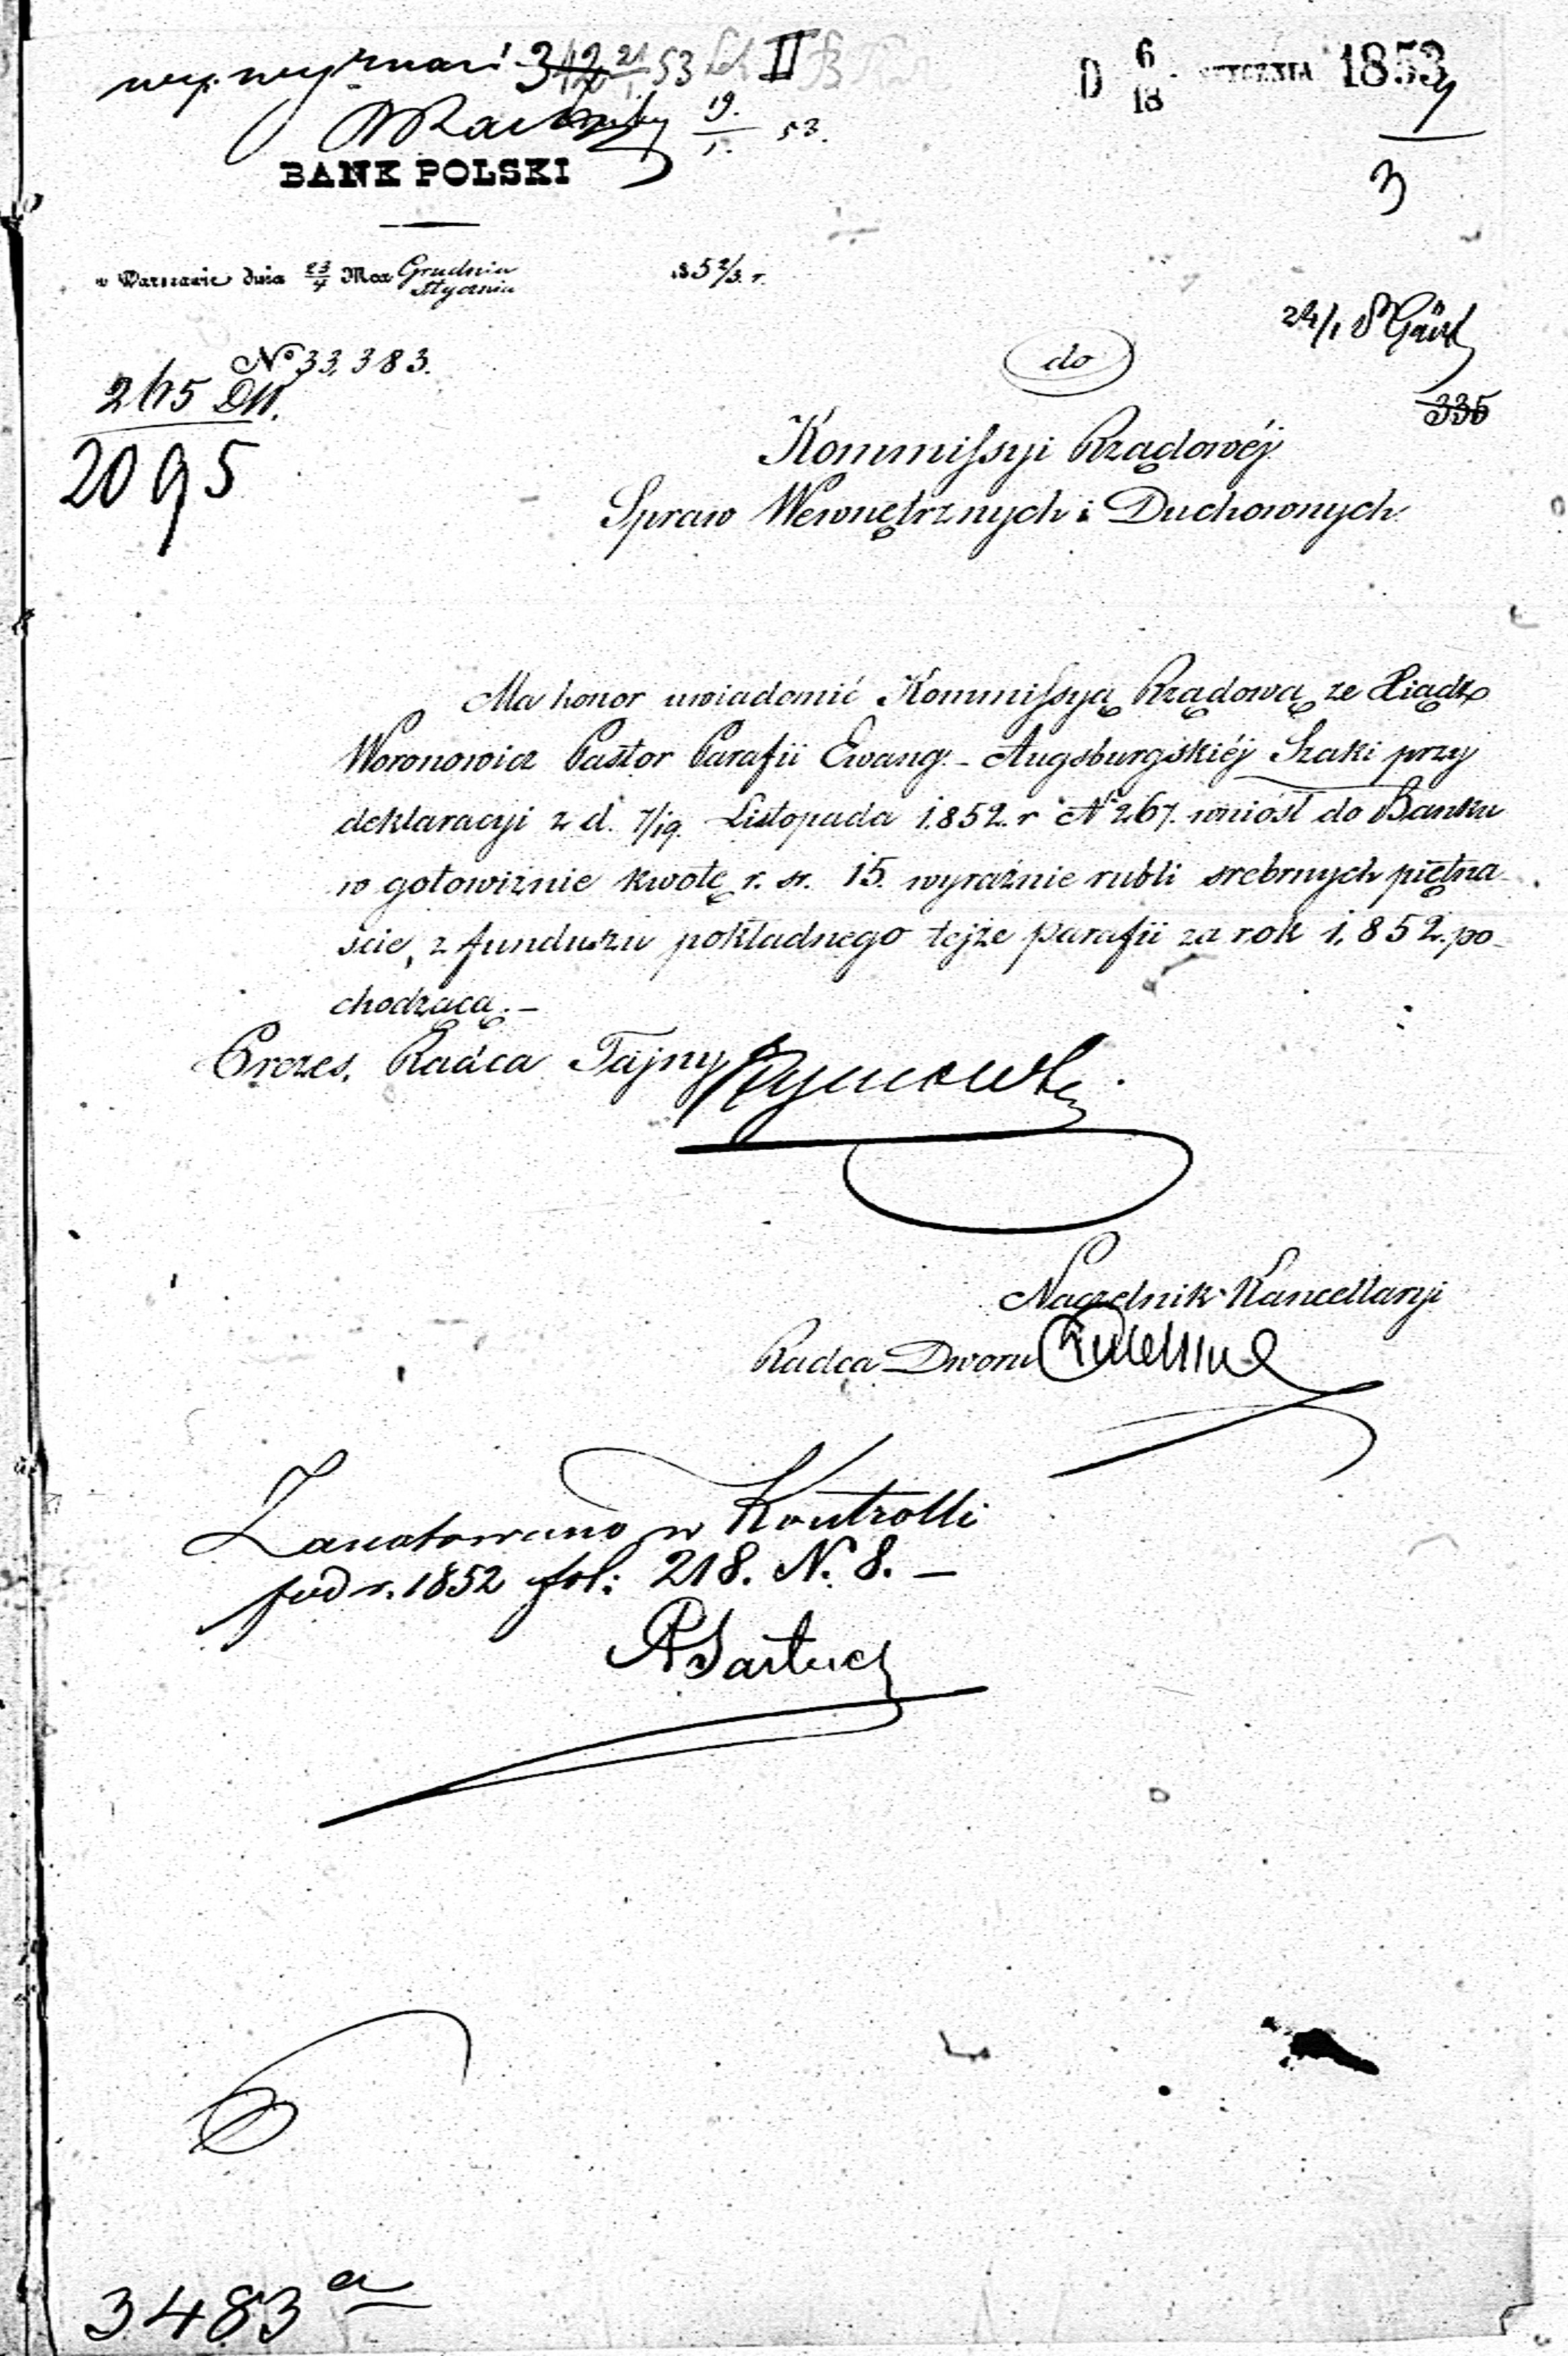 312 21/1 53 II
D 6/18 STYCZNIA 1853
19/1 53.
3
BANK POLSKI
w Warszawie dnia 23/4 Mca Grudnia Stycznia 185 2/3 r.
24/1
No 33,383.
do
265
335
2095
Kommissyi Rządowéj
Spraw Wewnętrznych i Duchownych
Ma honor uwiadomić Kommissyą Rządową, że Xiądz
Woronowicz Pastor Parafii Ewang. - Augsburgskiéj Szaki przy
deklaracyi z d. 7/19. Listopada 1.852. r No 267. wniósł do Banku
w gotowiźnie kwotę r. sr. 15. wyraźnie rubli srebrnych piętna-
ście, z funduszu pokładnego tejże parafii za rok 1,852. po-
chodzącą. -
Prezes, Radca Tajny
Naczelnik Kancellaryi
Radca Dworu
Zanotowano w Kontrolli
pod r. 1852 fol: 218. N. 8. -
3483 a